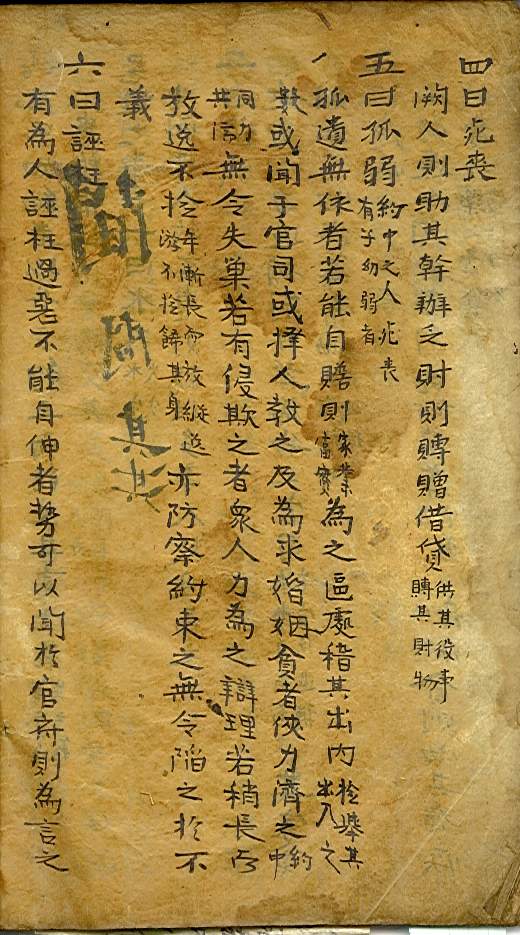 四曰死喪
闕人則助其幹辦乏財則賻贈借貸供其役事賻其財物
五曰孤弱約中之人死喪有子幼弱者
孤遺無依者若能自贍則家業富實為之區處稽其出內撿舉其出入之
數或聞于官司或擇人敎之及為求婚姻貧者俠力濟之約中
同力共活無令失巢若有侵欺之者衆人力為之辯理若稍長而
放逸不撿年漸長而放縱逸遊不撿飭其身亦防察約束之無令陷之於不
義
六曰誣枉
有為人誣枉過惡不能自伸者勢可以聞於官府則為言之